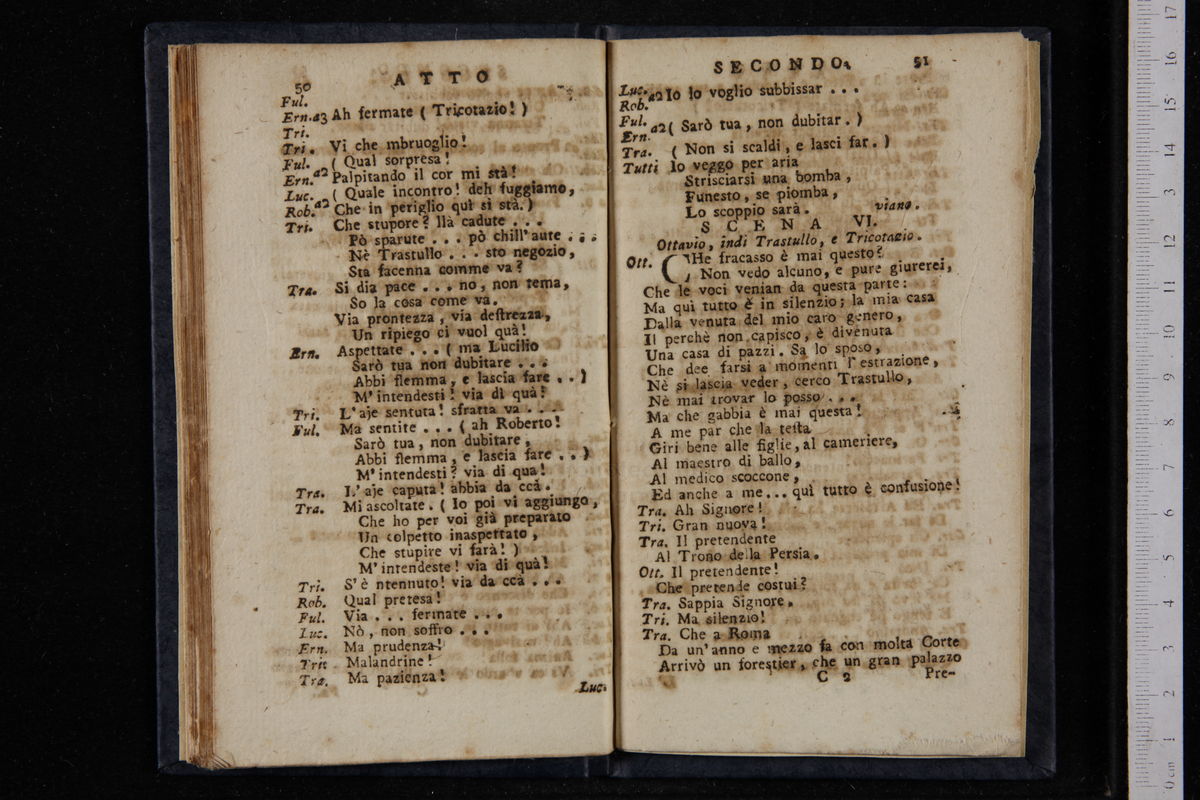 50 ATTO
Ful.
Ern. a3 Ah fermate ( Tricotazio! )
Tri.
Tri. Vi che mbruoglio!
Ful. ( Qual sorpresa!
Ern. a2 Palpitando il cor mi stà!
Luc. ( Quale incontro! deh fuggiamo,
Rob. a2 Che in periglio quì si stà. )
Tri. Che stupore? llà cadute . . .
Pò sparute . . . pò chill'aute . . .
Nè Trastullo . . . sto negozio,
Sta facenna comme va?
Tra. Si dia pace . . . no, non tema,
So la cosa come va.
Via prontezza, via destrezza,
Un ripiego ci vuol quà!
Ern. Aspettate . . . ( ma Lucilio
Sarò tua non dubitare . . .
Abbi flemma, e lascia fare . . )
M'intendesti! via di quà!
Tri. L'aje sentuta! sfratta va . . .
Ful. Ma sentite . . . ( ah Roberto!
Sarò tua, non dubitare,
Abbi flemma, e lascia fare . . )
M'intendesti? via di qua!
Tra. L'aje caputa! abbia da ccà.
Tra. Mi ascoltate. ( Io poi vi aggiungo,
Che ho per voi già preparato
Un colpetto inaspettato,
Che stupire vi farà! )
M'intendeste! via di quà!
Tri. S'è ntennuto! via da ccà . . .
Rob. Qual pretesa!
Ful. Via . . . fermate . . .
Luc. Nò, non soffro . . .
Ern. Ma prudenza!
Tri. Malandrine!
Tra. Ma pazienza!
Luc.
SECONDO. 51
Luc.
Rob. a2 Io lo voglio subbissar . . .
Ful.
Ern. a2 ( Sarò tua, non dubitar. )
Tra. ( Non si scaldi, e lasci far. )
Tutti Io veggo per aria
Strisciarsi una bomba,
Funesto, se piomba,
Lo scoppio sarà. viano.
SCENA VI.
Ottavio, indi Trastullo, e Tricotazio.
Ott. CHe fracasso è mai questo?
Non vedo alcuno, e pure giurerei,
Che le voci venian da questa parte:
Ma quì tutto è in silenzio; la mia casa
Dalla venuta del mio caro genero,
Il perchè non capisco, è divenuta
Una casa di pazzi. Sa lo sposo,
Che dee farsi a momenti l'estrazione,
Nè si lascia veder, cerco Trastullo,
Nè mai trovar lo posso . . .
Ma che gabbia è mai questa!
A me par che la testa
Giri bene alle figlie, al cameriere,
Al maestro di ballo,
Al medico scoccone,
Ed anche a me... quì tutto è confusione!
Tra. Ah Signore!
Tri. Gran nuova!
Tra. Il pretendente
Al Trono della Persia.
Ott. Il pretendente!
Che pretende costui?
Tra. Sappia Signore.
Tri. Ma silenzio!
Tra. Che a Roma
Da un'anno e mezzo fa con molta Corte
Arrivò un forestier, che un gran palazzo
C 2 Pre-
0 cm 1 2 3 4 5 6 7 8 9 10 11 12 13 14 15 16 17